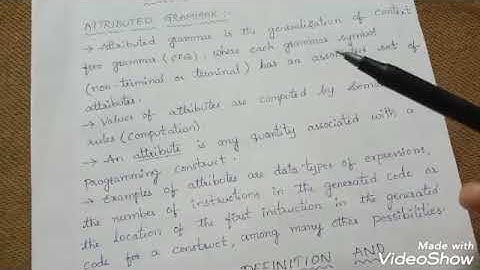 ATTRIBUTED GRAMMAR :-
→ Attributed grammar is the generalization of context
free grammar (CFG), where each grammar symbol
(non-terminal or terminal) has an associated set of
attributes.
→ Values of attributes are computed by
rules (computation)
→ An attribute is any quantity associated with a
Programming construct.
→ Examples of attributes are data types of expressions,
the number of instructions in the generated code or
the location of the first instruction in the generated
code for a construct, among many other possibilities.
DEFINITION AND
Made with
VideoShow